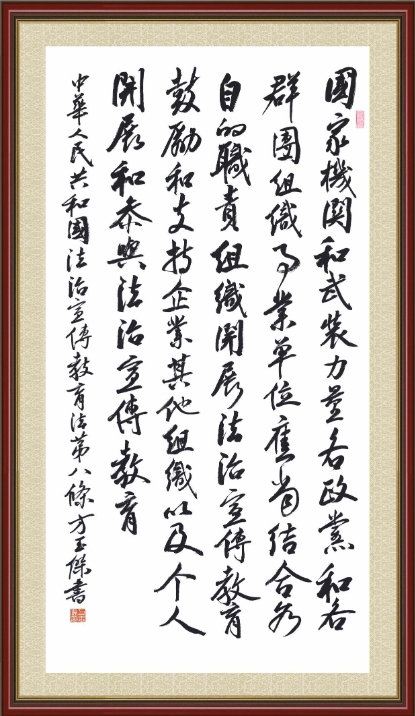 國家機関和武裝力量各政黨和各
群團組織事業單位應當結合各
自的職責組織開展法治宣傳教育
鼓勵和支持企業其他組織以及个人
開展和參與法治宣傳教育
中華人民共和國法治宣傳教育法第八條方傑書